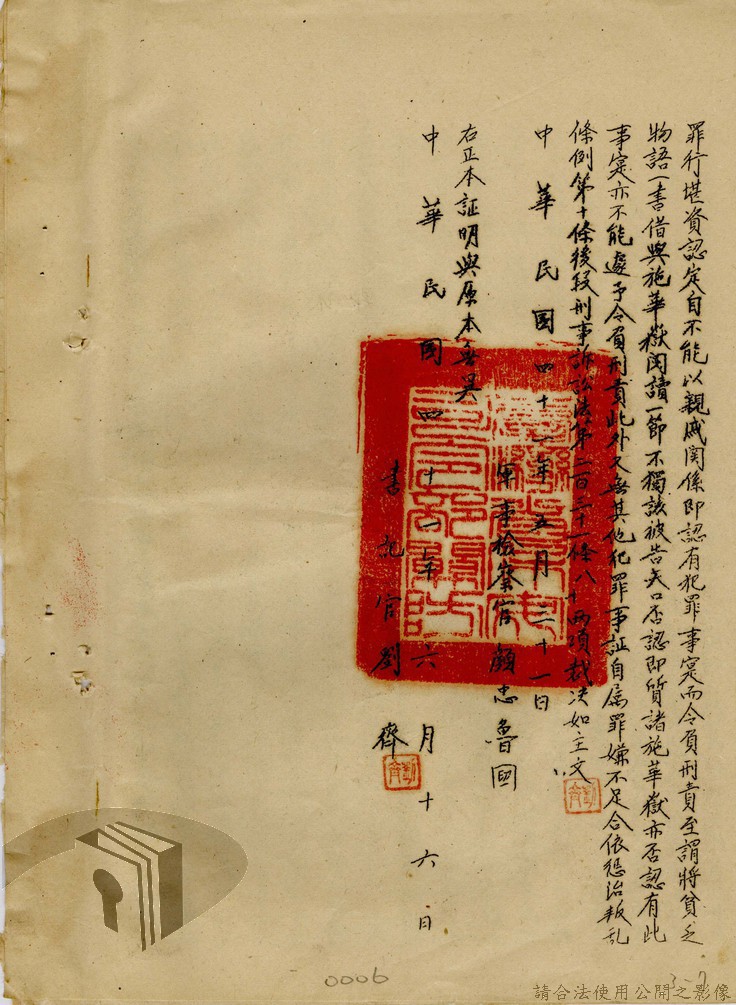 罪行堪資認定自不能以親戚関係即認有犯罪事寔而令負刑責至謂將貧乏
物語一書借與施華嶽閱讀一節不獨該被告矢口否認即質諸施華嶽亦否認有此
事寔亦不能遽予令負刑責此外又無其他犯罪事証自属罪嫌不足合依惩治叛乱
條例第十條後段刑事訴訟法第二百三十一條八十兩項裁决如主文
中華民國四十一年五月三十一日
軍事檢察官顏忠魯國
右正本証明與原本無異
中華民國四十一年六月十六日
書記官劉齊
0006
3-7
請合法使用公開之影像